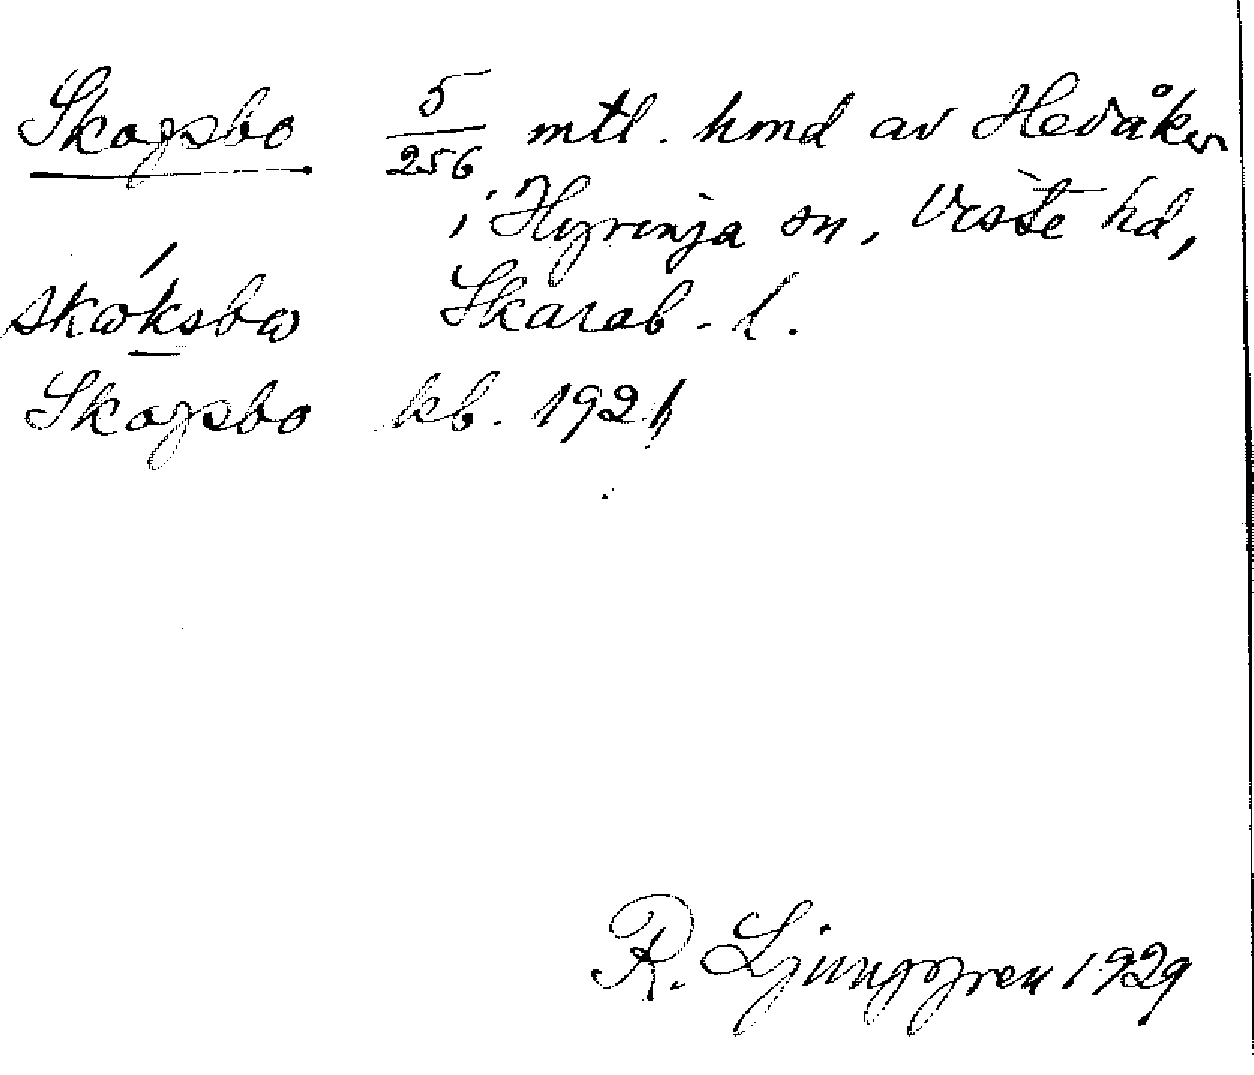 Skogsbo 5/256 mtl. hmd av Hedåker
i Hyringa sn, Viste hd,
skωksbω Skarab. l.
Skogsbo kb. 1921
R. Ljunggren 1929